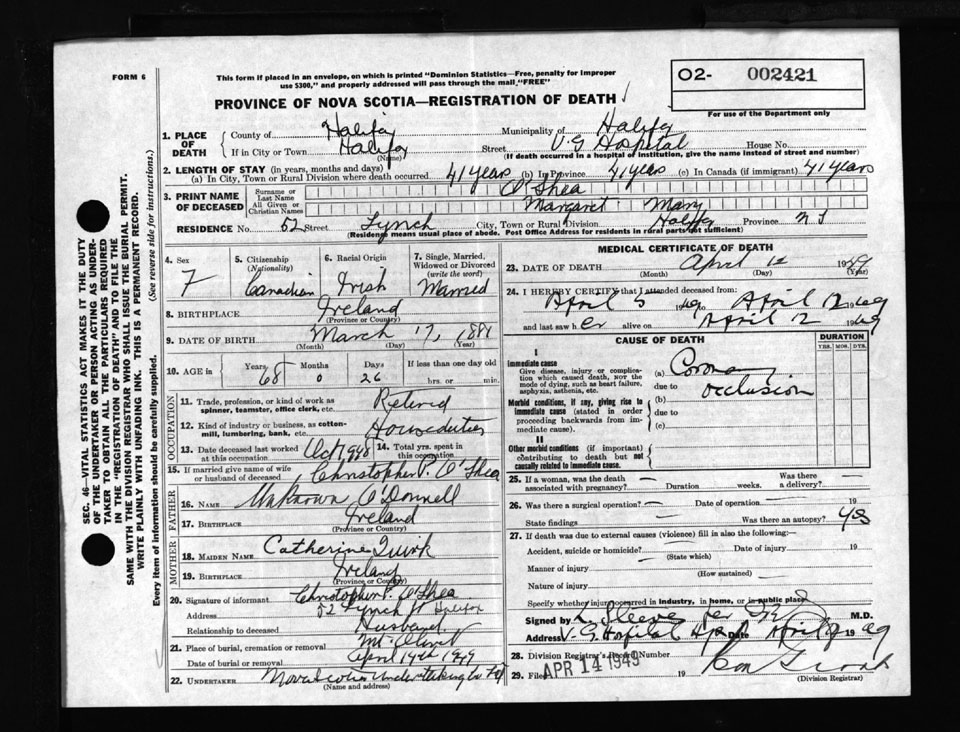 FORM 6
This form if placed in an envelope, on which is printed "Dominion Statistics—Free, penalty for improper
use $300," and properly addressed will pass through the mail "FREE"
O2- 002421
For use of the Department only
PROVINCE OF NOVA SCOTIA—REGISTRATION OF DEATH
1. PLACE OF DEATH
County of Halifax Municipality of Halifax
If in City or Town Halifax Street V.G Hospital House No.
(Name) (If death occurred in a hospital or institution, give the name instead of street and number)
2. LENGTH OF STAY (in years, months and days)
(a) In City, Town or Rural Division where death occurred 41 years (b) In Province 41 years (c) In Canada (if immigrant) 41 years
3. PRINT NAME OF DECEASED
Surname or Last Name O'Shea
All Given or Christian Names Margaret Mary
RESIDENCE No. 52 Street Lynch City, Town or Rural Division Halifax Province N S
(Residence means usual place of abode. Post Office Address for residents in rural parts not sufficient)
4. Sex
F
5. Citizenship
(Nationality)
Canadian
6. Racial Origin
Irish
7. Single, Married, Widowed or Divorced
(write the word)
Married
8. BIRTHPLACE Ireland
(Province or Country)
9. DATE OF BIRTH March 17, 1881
(Month) (Day) (Year)
10. AGE in
Years 68 Months 0 Days 26 If less than one day old
hrs. or min.
OCCUPATION
11. Trade, profession, or kind of work as
spinner, teamster, office clerk, etc. Retired
12. Kind of industry or business, as cotton-
mill, lumbering, bank, etc. Houseduties
13. Date deceased last worked
at this occupation Oct 1948
14. Total yrs. spent in
this occupation
15. If married give name of wife
or husband of deceased Christopher P. O'Shea
FATHER
16. NAME Unknown O'Donnell
17. BIRTHPLACE Ireland
(Province or Country)
MOTHER
18. MAIDEN NAME Catherine Quirk
19. BIRTHPLACE Ireland
(Province or Country)
20. Signature of informant Christopher P. O'Shea
Address 52 Lynch St Halifax
Relationship to deceased Husband
21. Place of burial, cremation or removal Mt Olivet
Date of burial or removal April 14th 1949
22. UNDERTAKER Nova Scotia Undertaking Co
(Name and address)
MEDICAL CERTIFICATE OF DEATH
23. DATE OF DEATH April 12 1949
(Month) (Day) (Year)
24. I HEREBY CERTIFY that I attended deceased from:
April 5 1949 to April 12 1949
and last saw her alive on April 12 1949
CAUSE OF DEATH
DURATION
YRS. MOS. DYS.
I
Immediate cause
Give disease, injury or complica-
tion which caused death, not the
mode of dying, such as heart failure,
asphyxia, asthenia, etc.
(a) Coronary
due to occlusion
Morbid conditions, if any, giving rise to
immediate cause (stated in order
proceeding backwards from im-
mediate cause).
(b)
due to
(c)
II
Other morbid conditions (if important)
contributing to death but not
causally related to immediate cause.
25. If a woman, was the death
associated with pregnancy? — Duration weeks. Was there a delivery?
26. Was there a surgical operation? — Date of operation 19
State findings Was there an autopsy? yes
27. If death was due to external causes (violence) fill in also the following:
Accident, suicide or homicide? Date of injury 19
(State which)
Manner of injury
(How sustained)
Nature of injury
Specify whether injury occurred in industry, in home, or in public place
Signed by M.D.
Address V.G Hospital Date April 1949
28. Division Registrar's Record Number
29. Filed APR 14 1949 19
(Division Registrar)
SEC. 46—VITAL STATISTICS ACT MAKES IT THE DUTY
OF THE UNDERTAKER OR PERSON ACTING AS UNDER-
TAKER TO OBTAIN ALL THE PARTICULARS REQUIRED
IN THE "REGISTRATION OF DEATH" AND TO FILE THE
SAME WITH THE DIVISION REGISTRAR WHO SHALL ISSUE THE BURIAL PERMIT.
WRITE PLAINLY WITH UNFADING INK. THIS IS A PERMANENT RECORD.
Every item of information should be carefully supplied. (See reverse side for instructions.)